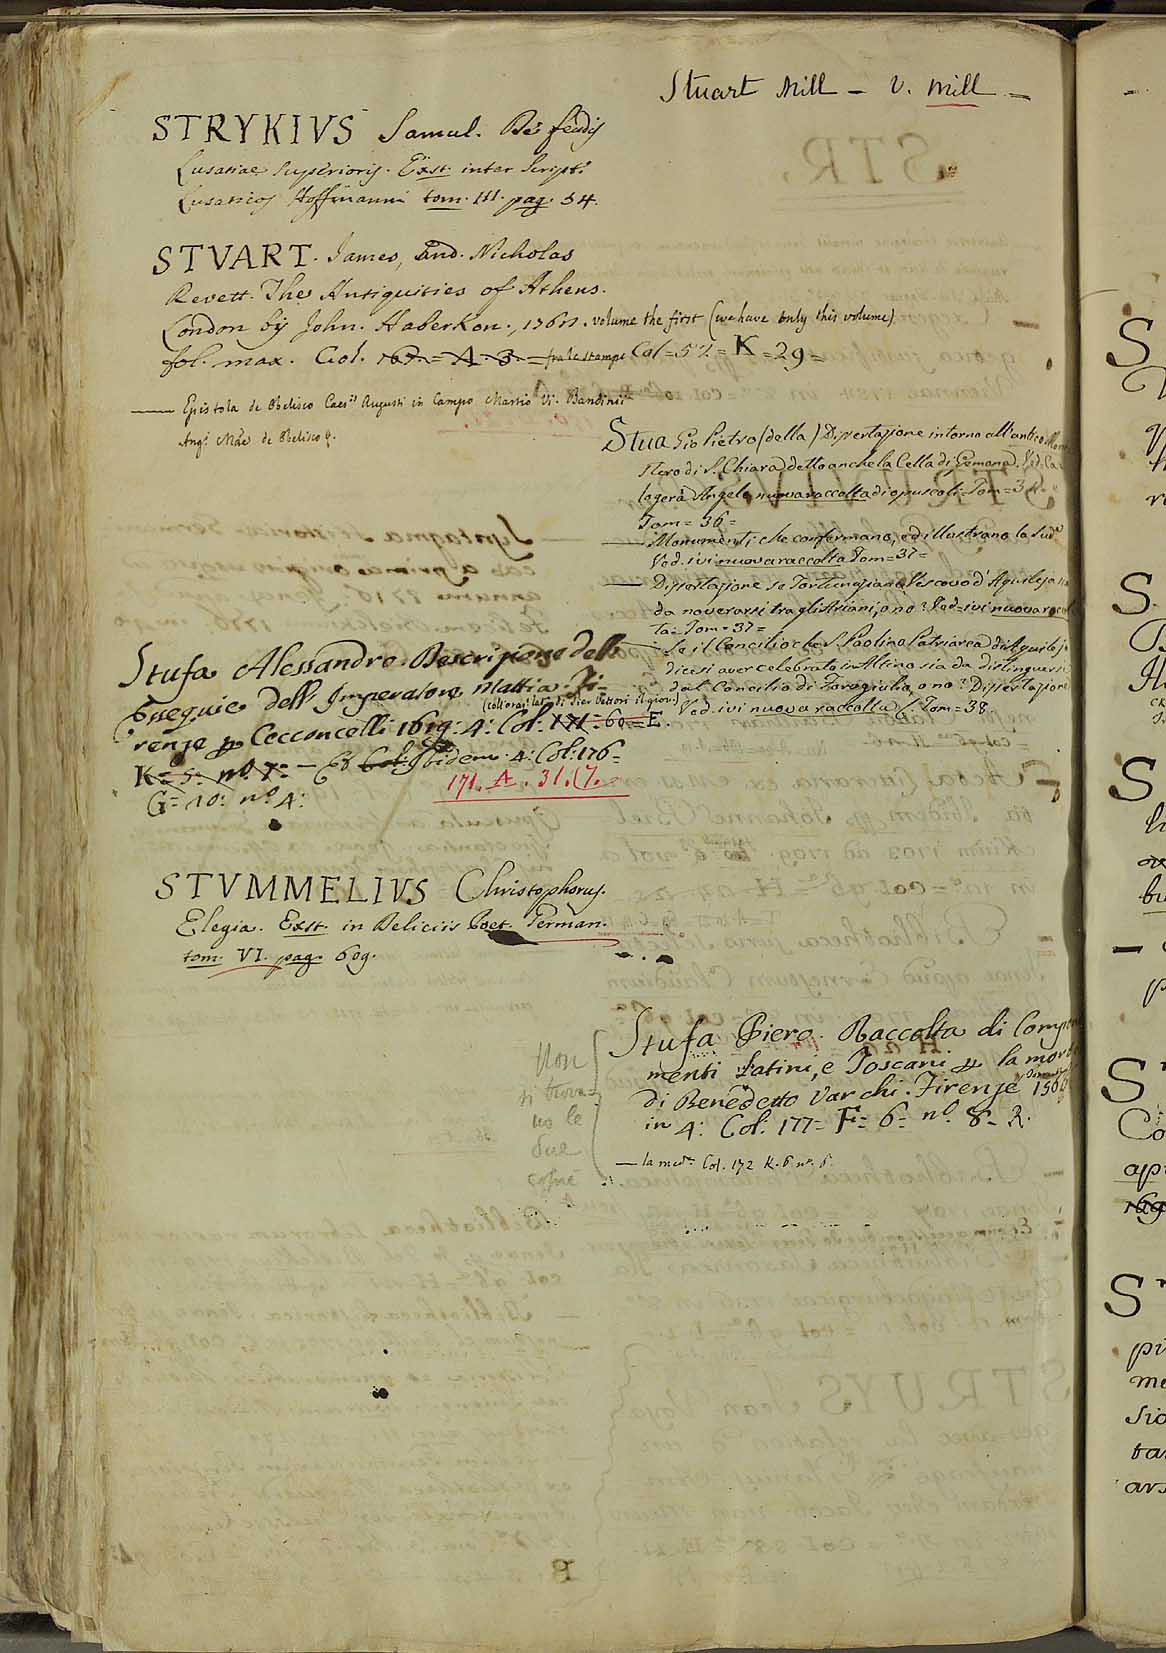 Stuart Mill – V. Mill –
STRYKIVS Samul. De feudis
Lusatiae Superioris. Exst. inter Script.
Lusaticos Hoffmanni tom. III. pag. 54.
STVART. James, and. Nicholas
Revett. The Antiquities of Athens.
London by John. Haberkon., 1762. volume the first (we have only this volume)
fol. max. Col. Col = 52 = K = 29 =
— Epistola de Obelisco Caes.is Augusti in Campo Martio V. Bandinii
Ang. Mae de Obelisco &.
Stua Gio Pietro (della) Dissertazione intorno all'antico Mona
stero di S. Chiara detto anche la Cella di Gemona. Ved. Ca
logerà Angelo nuova raccolta di opuscoli Tom = 34 = e
Tom = 36 =
— Monumenti che confermano, ed illustrano la Sud.a
Ved. ivi nuova raccolta Tom = 37 =
— Dissertazione se Fortunaziano Vescovo d'Aquileja sia
da noverarsi tra gli Ariani, o no? Ved = ivi nuova racol
ta: Tom = 37 =
— Se il Concilio che S. Paolino Patriarca di Aquileja
dicesi aver celebrato in Altino sia da distinguersi
dal Concilio di Forogiulio, o no? Dissertazione
Ved. ivi nuova raccolta &. Tom = 38
Stufa Alessandro. Descrizione delle
Esequie dell' Imperatore Mattia. Fi
(coll'oraz. lat. di Pier Vettori il giov.)
renze pp Cecconcelli 1619: 4: Col: 171 = 60 = E.
K = 5: n.o 7: – Et Ibidem 4: Col: 176 =
G = 10: n.o 4:
171. A. 31. (7.
STVMMELIVS Christophorus.
Elegia. Exst. in Deliciis Poet. German.
tom. VI. pag. 609.
Stufa Piero. Raccolta di Compo
menti Latini, e Toscani pp la morte
di Benedetto Varchi. Firenze 1566
in 4: Col: 177 = F = 6 = n.o 8 = R.
— la med.a Col. 172 K. 6 n.o 6.
Non
si trova=
no le
due
copie